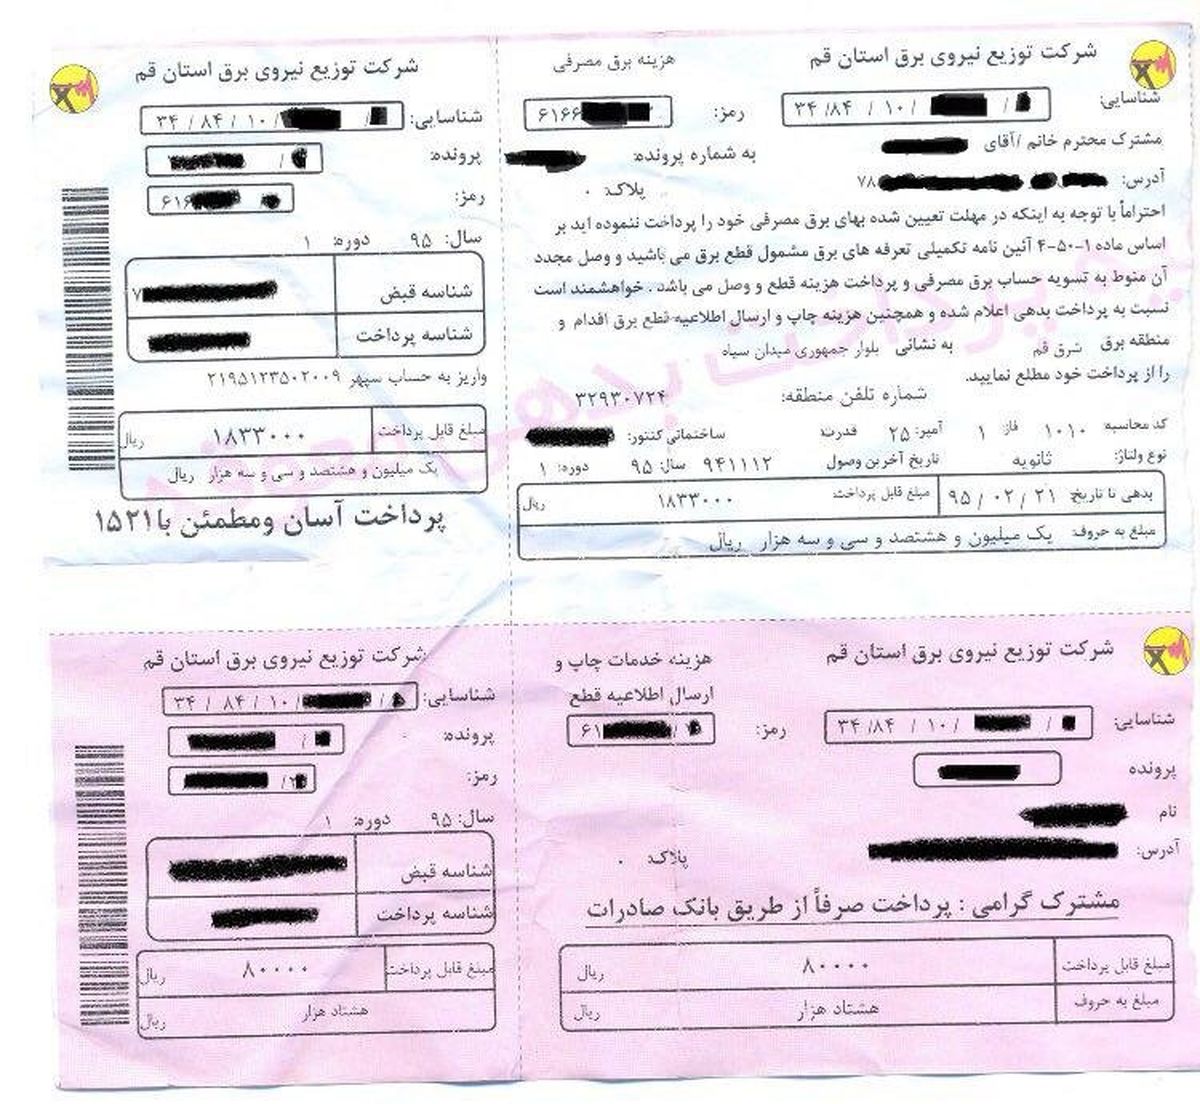 شرکت توزیع نیروی برق استان قم
شناسایی: / / ۱۰ / ۸۴/ ۳۴
هزینه برق مصرفی
رمز: ۶۱۶۶
مشترک محترم خانم /آقای
به شماره پرونده:
آدرس: ۷۸
پلاک: ۰
احتراماً با توجه به اینکه در مهلت تعیین شده بهای برق مصرفی خود را پرداخت ننموده اید بر
اساس ماده ۱-۵۰-۴ آئین نامه تکمیلی تعرفه های برق مشمول قطع برق می باشید و وصل مجدد
آن منوط به تسویه حساب برق مصرفی و پرداخت هزینه قطع و وصل می باشد . خواهشمند است
نسبت به پرداخت بدهی اعلام شده و همچنین هزینه چاپ و ارسال اطلاعیه قطع برق اقدام و
منطقه برق شرق قم به نشانی بلوار جمهوری میدان سپاه
را از پرداخت خود مطلع نمایید.
شماره تلفن منطقه: ۳۲۹۳۰۷۲۴
کد محاسبه: ۱۰۱۰ فاز: ۱ آمپر: ۲۵ قدرت: ساختمانی کنتور:
نوع ولتاژ: ثانویه تاریخ آخرین وصول ۹۴۱۱۱۲ سال: ۹۵ دوره: ۱
بدهی تا تاریخ: ۹۵/۰۲/۲۱ مبلغ قابل پرداخت: ۱۸۳۳۰۰۰ ریال
مبلغ به حروف: یک میلیون و هشتصد و سی و سه هزار ریال
پرداخت بدهی معوقه
شرکت توزیع نیروی برق استان قم
شناسایی: / / ۱۰ / ۸۴ / ۳۴
پرونده: /
رمز: ۶۱۶
سال: ۹۵ دوره: ۱
شناسه قبض ۷
شناسه پرداخت
واریز به حساب سپهر ۲۱۹۵۱۲۳۵۰۲۰۰۹
مبلغ قابل پرداخت ۱۸۳۳۰۰۰ ریال
یک میلیون و هشتصد و سی و سه هزار ریال
پرداخت آسان ومطمئن با۱۵۲۱
شرکت توزیع نیروی برق استان قم
هزینه خدمات چاپ و
ارسال اطلاعیه قطع
شناسایی: / / ۱۰ / ۸۴/ ۳۴
رمز: ۶۱ /
پرونده
نام
آدرس:
پلاک: ۰
مشترک گرامی : پرداخت صرفاً از طریق بانک صادرات
مبلغ قابل پرداخت ۸۰۰۰۰ ریال
مبلغ به حروف هشتاد هزار ریال
شرکت توزیع نیروی برق استان قم
شناسایی: / / ۱۰ / ۸۴ / ۳۴
پرونده: /
رمز: /
سال: ۹۵ دوره: ۱
شناسه قبض
شناسه پرداخت
مبلغ قابل پرداخت ۸۰۰۰۰ ریال
هشتاد هزار ریال